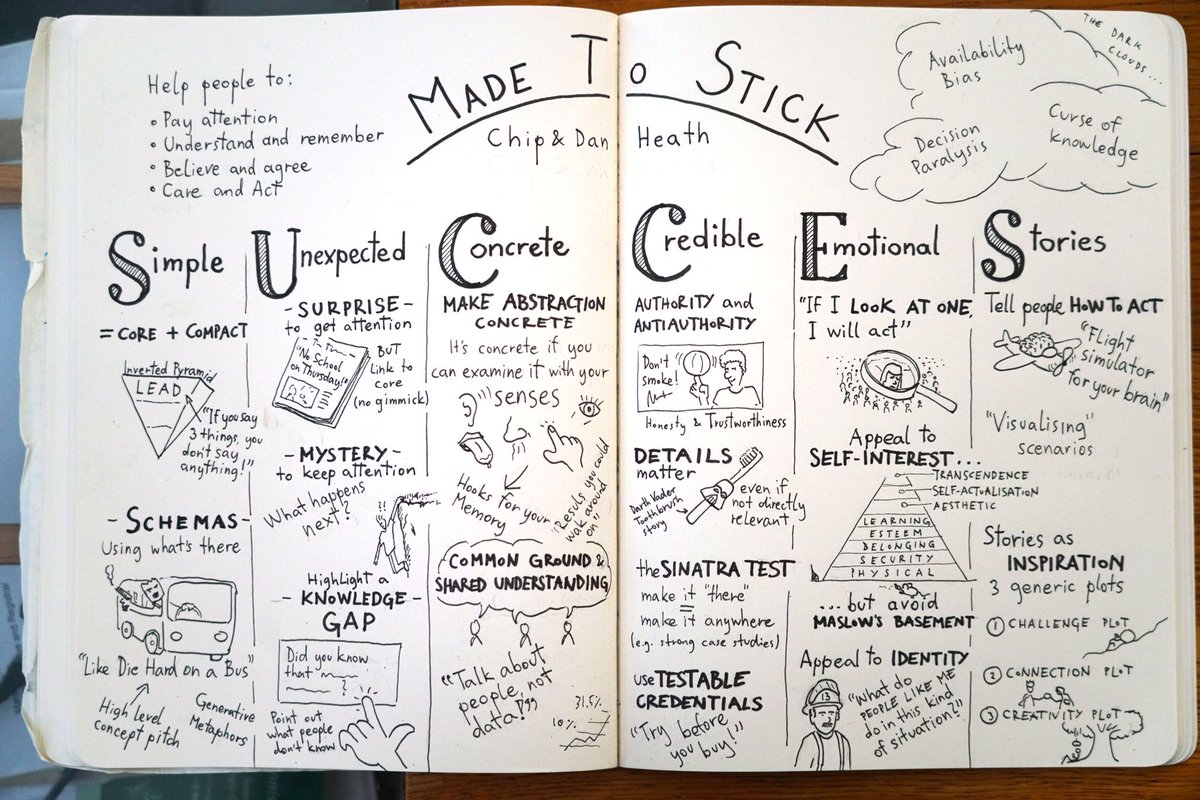 MADE TO STICK
Chip & Dan Heath
Help people to:
• Pay attention
• Understand and remember
• Believe and agree
• Care and Act
THE DARK
CLOUDS...
Availability
Bias
Decision
Paralysis
Curse of
knowledge
Simple
= CORE + COMPACT
Inverted Pyramid
LEAD
"If you say
3 things, you
don't say
anything!"
- SCHEMAS -
Using what's there
"Like Die Hard on a Bus"
High level
concept pitch
Generative
Metaphors
Unexpected
- SURPRISE -
to get attention
"No School
on Thursday!"
BUT
Link to
core
(no gimmick)
- MYSTERY -
to keep attention
What happens
next?
Highlight a
- KNOWLEDGE -
GAP
Did you know
that
?
Point out
what people
don't know
Concrete
MAKE ABSTRACTION
CONCRETE
It's concrete if you
can examine it with your
senses
Hooks for your
Memory
"Results you could
walk around
on"
COMMON GROUND &
SHARED UNDERSTANDING
"Talk about
people, not
data!"
31.5%
10%
Credible
AUTHORITY and
ANTIAUTHORITY
Don't
smoke!
Honesty & Trustworthiness
DETAILS
matter
Darth Vader
Toothbrush
story
even if
not directly
relevant
the SINATRA TEST
make it "there"
=
make it anywhere
(e.g. strong case studies)
use TESTABLE
CREDENTIALS
"Try before
you buy!"
Emotional
"If I LOOK AT ONE,
I will act"
Appeal to
SELF-INTEREST...
TRANSCENDENCE
SELF-ACTUALISATION
AESTHETIC
LEARNING
ESTEEM
BELONGING
SECURITY
PHYSICAL
...but avoid
MASLOW'S BASEMENT
Appeal to IDENTITY
13
"What do
PEOPLE LIKE ME
do in this kind
of situation?"
Stories
Tell people HOW TO ACT
"Flight
simulator
for your brain"
"Visualising"
scenarios
Stories as
INSPIRATION
3 generic plots
1 CHALLENGE PLOT
2 CONNECTION PLOT
3 CREATIVITY PLOT